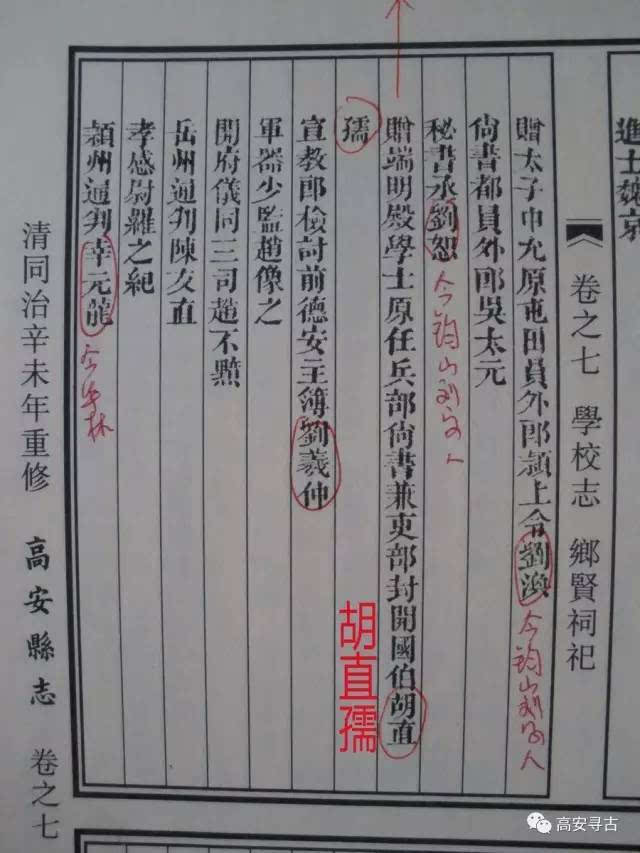 進士魏京
卷之七 學校志 鄉賢祠祀
贈太子中允原屯田員外郎潁上令劉渙
今筠山刘家人
尙書都員外郎吳太元
秘書丞劉恕
今筠山刘家人
贈端明殿學士原任兵部尙書兼吏部封開國伯胡直
孺
胡直孺
宣教郎檢討前德安主簿劉羲仲
軍器少監趙像之
開府儀同三司趙不黙
岳州通判陳友直
孝感尉羅之紀
潁州通判幸元龍
清同治辛未年重修 高安縣志 卷之七
高安寻古